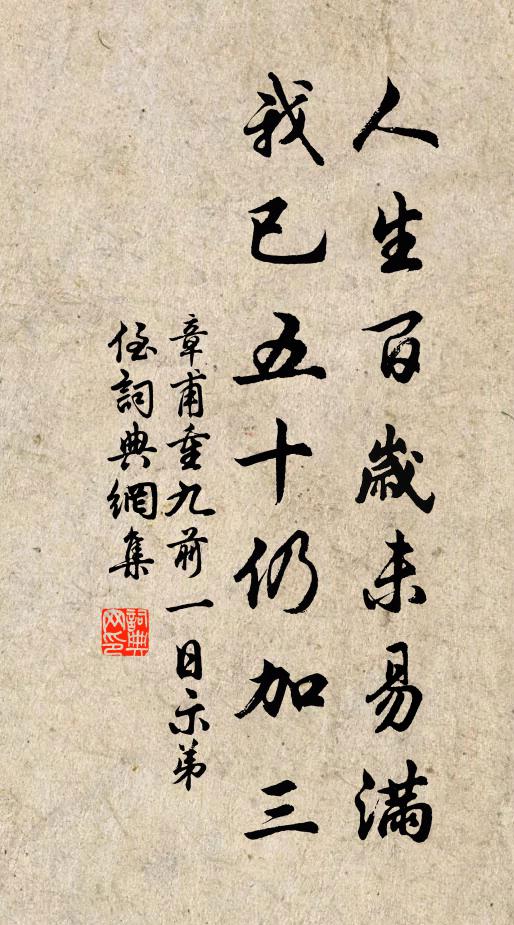 人生百歲未易滿
我已五十仍加三
章甫重九前一日示弟
侄詞典網集
詞典
网印